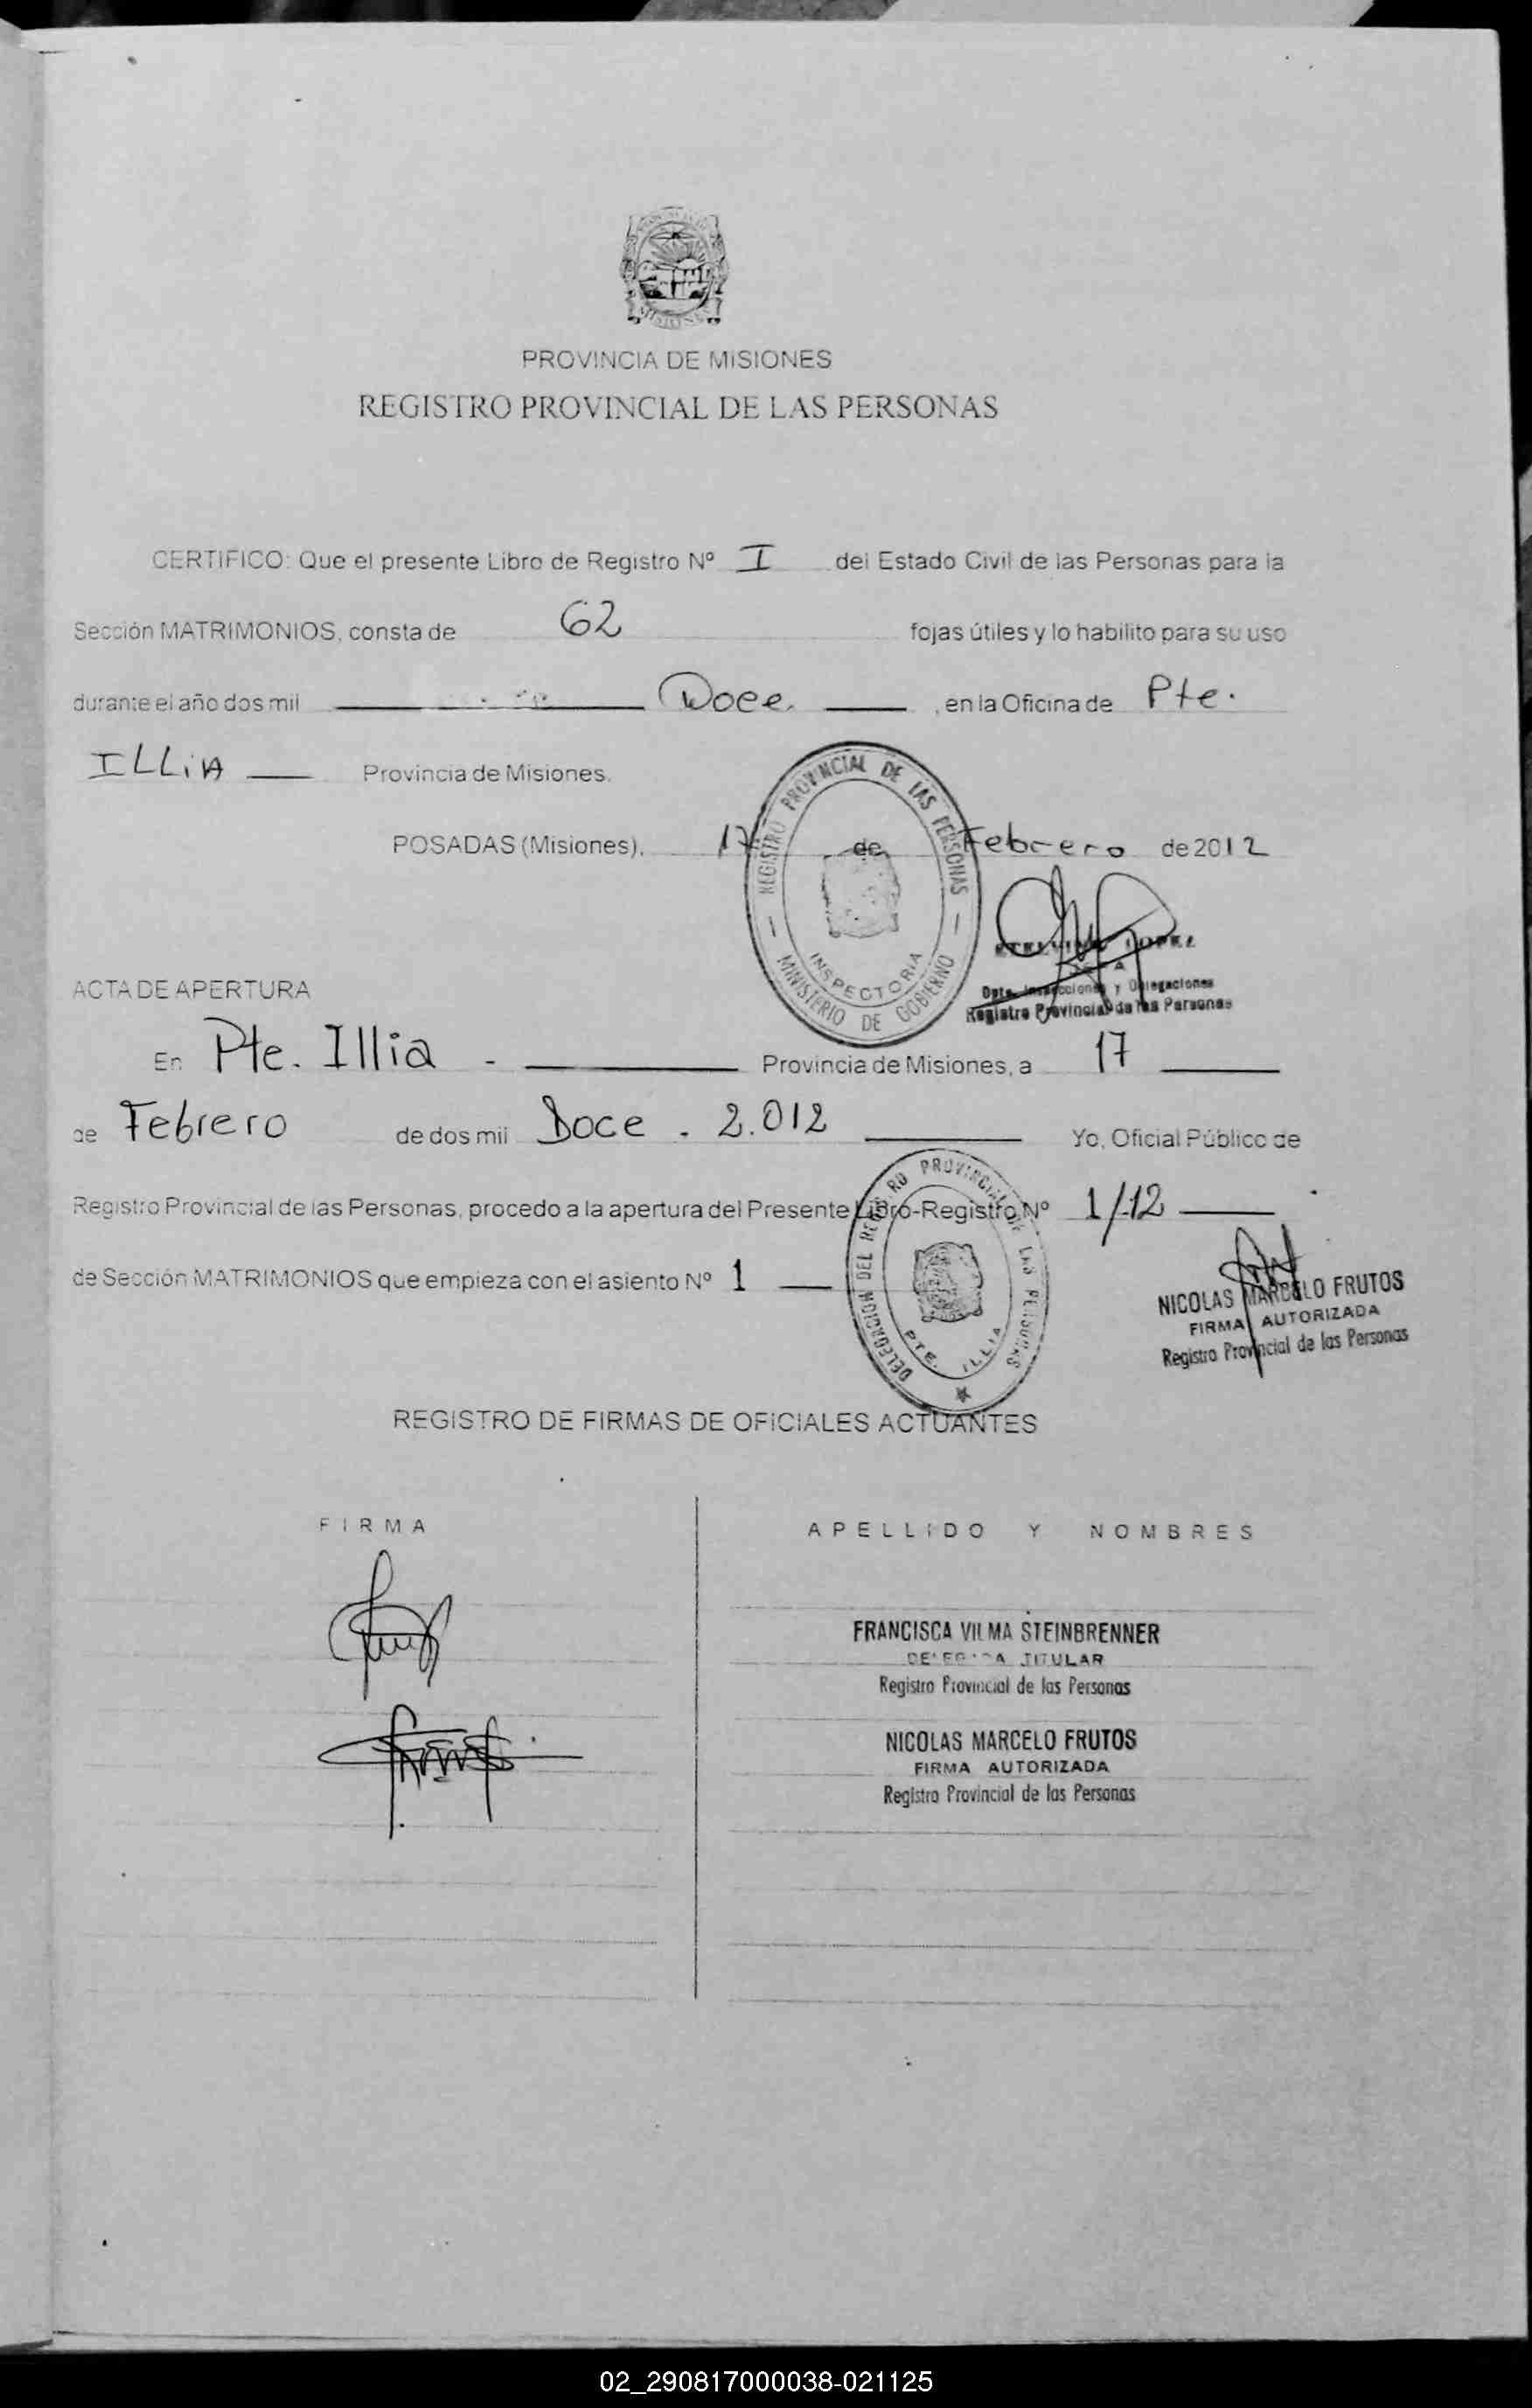 MISIONES
PROVINCIA DE MISIONES
REGISTRO PROVINCIAL DE LAS PERSONAS
CERTIFICO: Que el presente Libro de Registro Nº I del Estado Civil de las Personas para la
Sección MATRIMONIOS, consta de 62 fojas útiles y lo habilito para su uso
durante el año dos mil Doce , en la Oficina de Pte.
ILLiA Provincia de Misiones.
POSADAS (Misiones), 17 de Febrero de 2012
REGISTRO PROVINCIAL DE LAS PERSONAS
INSPECTORIA
MINISTERIO DE GOBIERNO
LOPEZ
Dpto. Inspecciones y Delegaciones
Registro Provincial de las Personas
ACTA DE APERTURA
En Pte. Illia - Provincia de Misiones, a 17
de Febrero de dos mil Doce . 2.012 Yo, Oficial Público de
Registro Provincial de las Personas, procedo a la apertura del Presente Libro-Registro Nº 1/12
de Sección MATRIMONIOS que empieza con el asiento Nº 1
DELEGACION DEL REGISTRO PROVINCIAL DE LAS PERSONAS
PTE. ILLIA
NICOLAS MARCELO FRUTOS
FIRMA AUTORIZADA
Registro Provincial de las Personas
REGISTRO DE FIRMAS DE OFICIALES ACTUANTES
FIRMA APELLIDO Y NOMBRES
FRANCISCA VILMA STEINBRENNER
DELEGADA TITULAR
Registro Provincial de las Personas
NICOLAS MARCELO FRUTOS
FIRMA AUTORIZADA
Registro Provincial de las Personas
02_290817000038-021125